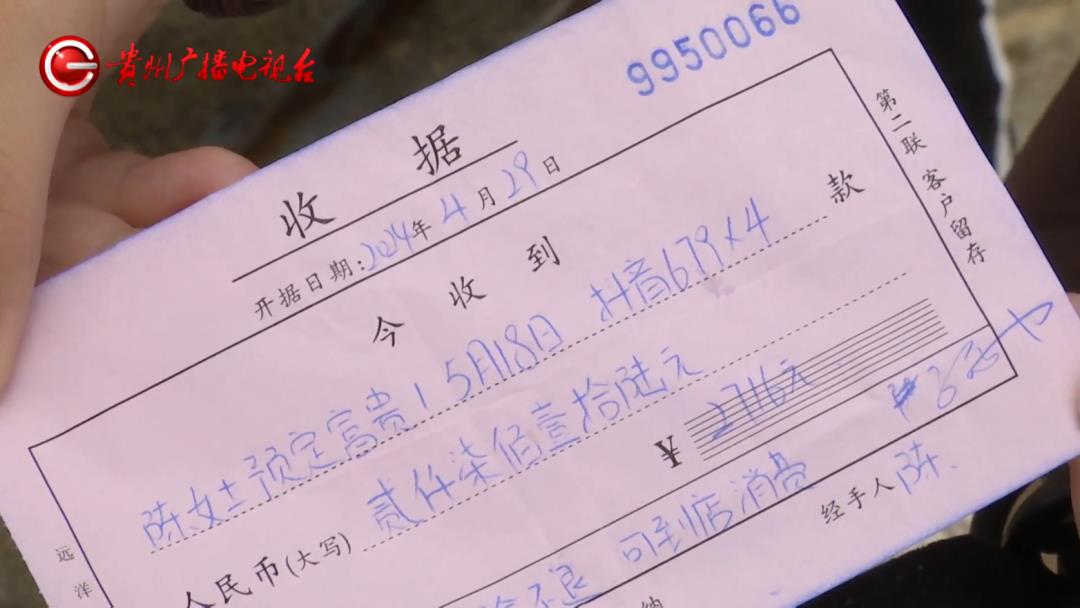 贵州广播电视台
9950066
收据
开据日期:2024年4月29日
第二联 客户留存
今收到
陈女士预定富贵1 5月18日 抖音679×4 款
人民币(大写) 贰仟柒佰壹拾陆元
¥2716元
不退 可到店消费
经手人 陈
远洋
纳